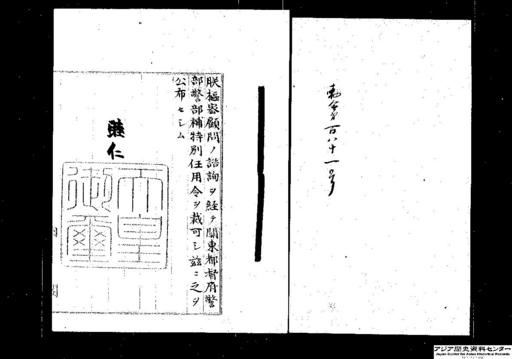 勅令第百八十一号
朕枢密顧問ノ諮詢ヲ経テ関東都督府警
部警部補特別任用令ヲ裁可シ茲ニ之ヲ
公布セシム
睦仁
天皇御璽
アジア歴史資料センター
Japan Center for Asian Historical Records